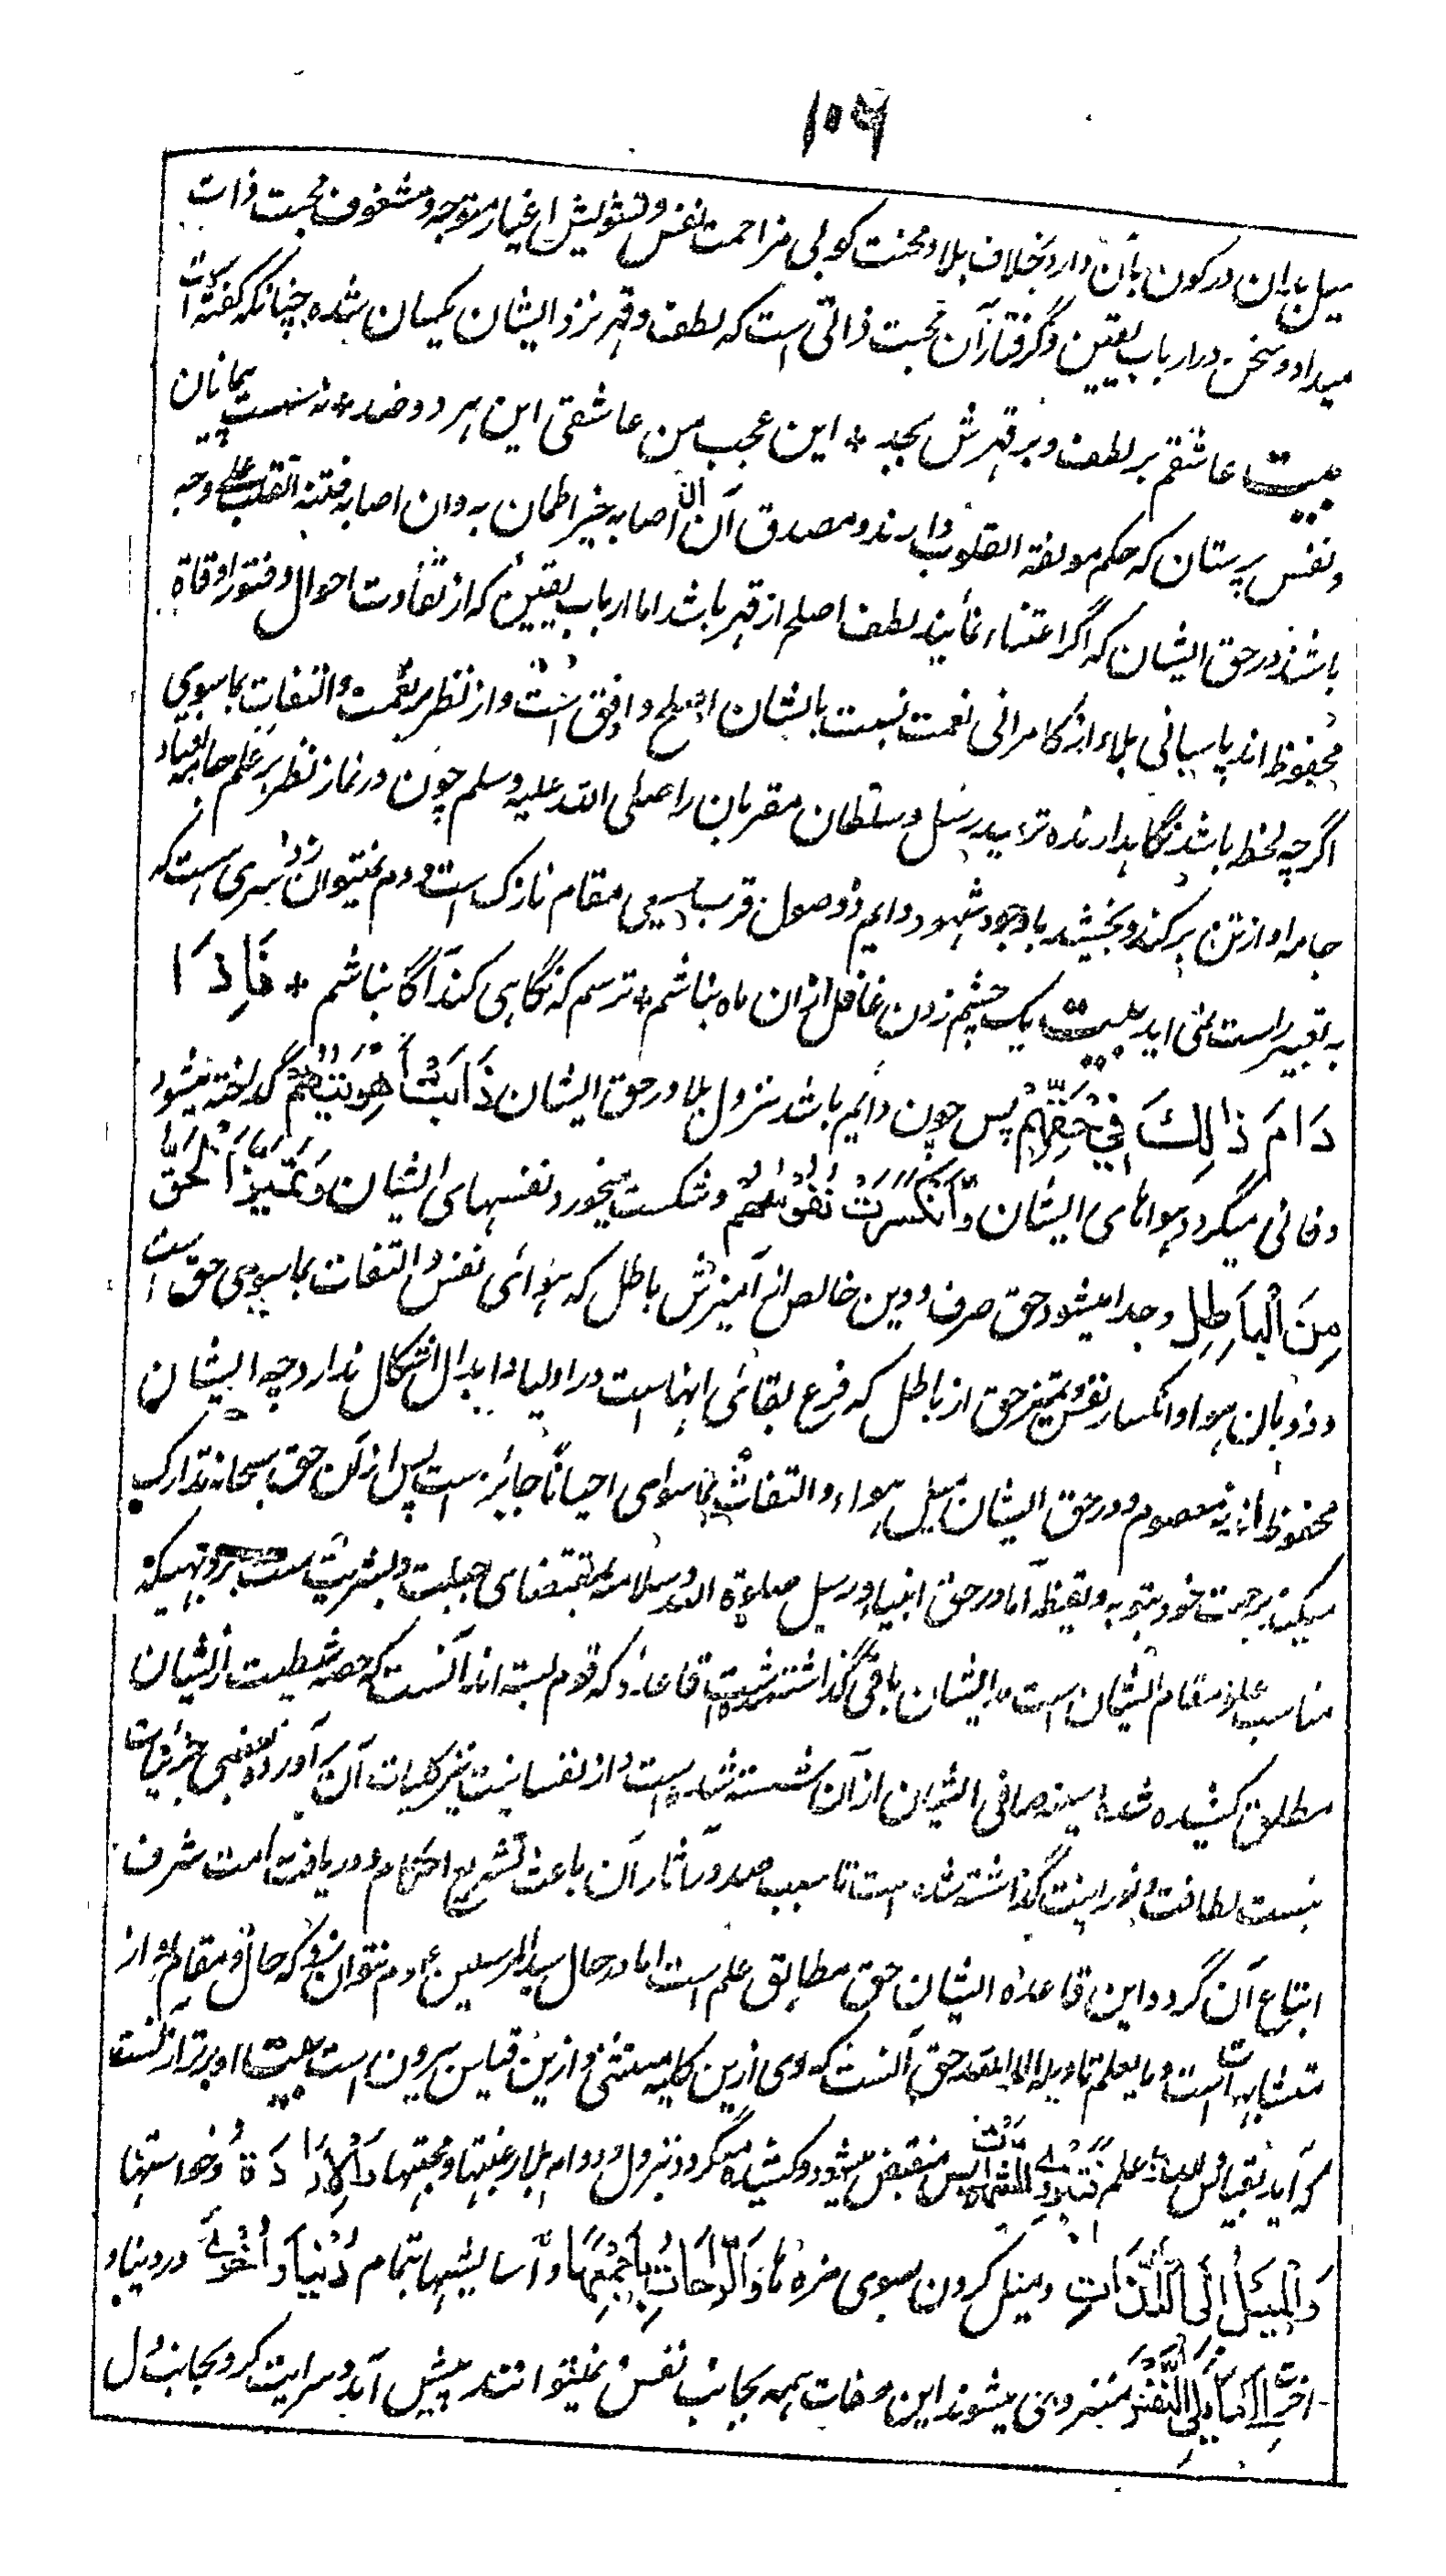 ۱۰۶
میل بدان در کون بآن دارد بخلاف بلا و محنت کو بی مزاحمت نفس و تشویش اغیار متوجه و مشغوف محبت ذات
میدارد و سخن در ارباب یقین و گرفتار آن محبت ذاتی است که لطف و قهر نزد ایشان یکسان شده چنانکه گفته است
بیت عاشقم بر لطف و بر قهرش بجد * این عجب من عاشق این هر دو ضد * نه سست پیمانان
و نفس پرستان که حکم مولفة القلوب دارند و مصدق آن ان اصابه خیر اطمان به وان اصابه فتنة انقلب علی وجه
باشند در حق ایشان که اگر اعتناء نمایند لطف اصلح از قهر باشد اما ارباب یقین که از تفاوت احوال و فتور اوقاة
محفوظ اند پاسبانی بلا از کامرانی نعمت نسبت بایشان اصلح و اوفق است و از نظر بر نعمت و التفات بماسوی
اگرچه لحظه باشد نگاهدارنده تر سید رسل و سلطان مقربان را صلی الله علیه وسلم چون در نماز نظر بر علم جامه افتاد
جامه او از تن بر کند و بخشید با وجود شهود دایم و وصول قرب مقام نازک است و دم نمیتوان زد سری است که
به تعبیر راست نمی اید بیت یک چشم زدن غافل از ان ماه نباشم * ترسم که نگاهی کند آگاه نباشم * فَاِذَا
دَامَ ذٰلِكَ فِيْ حَقِّهِمْ پس چون دائم باشد نزول بلا در حق ایشان ذَابَتْ أَهْوِيَتُهُمْ گداخته میشود
و فانی میگردد هواهای ایشان وَانْكَسَرَتْ نُفُوْسُهُمْ و شکست میخورد نفسهای ایشان وَتَمَيَّزَ الْحَقُّ
مِنَ الْبَاطِلِ و جدا میشود حق صرف و دین خالص از آمیزش باطل که هوائی نفس و التفات بماسوی حق است
و ذوبان هوا و انکسار نفس و تمیز حق از باطل که فرع بقائی انهاست در اولیا و ابدال اشکال ندارد چه ایشان
محفوظ اند نه معصوم و در حق ایشان میل هواء و التفات بماسوای احیاناً جایز است پس از آن حق سبحانه تدارک
میکند برحمت خود بتوبه و تیقظ اما در حق انبیا و رسل صلوة الله و سلامه بمقتضای جبلت و بشریت بر وجهیکه
مناسب علو مقام ایشان است در ایشان باقی گذاشته شده است قاعده که قوم بسته اند آنست که حصه شیطیت از ایشان
مطلق کشیده شده سینه صافی ایشان از آن شسته شده است و از نفسانیت نیز کلیات آن آورده بعضی جزئیات
بنسبت لطافت و نورانیت گذاشته شده است تا سبب صدور آثار آن باعث تشریع احکام و دریافت امت شرف
اتباع آن گردد و این قاعده ایشان حق مطابق علم است اما در حال سید المرسلین م دم نتوان زد که حال و مقام او از
متشابهات است و ما یعلم تاویله الا الله حق آنست که وی ازین کلیه مستثنی و ازین قیاس بیرون است بیت او برتر از آنست
که آید بقیاس علم فَتَنْزَوِي الشَّهَوَاتُ پس منقبض میشود و کشیده میگردد بنزول و دوام بلا رغبتها و محبتها وَالْاِرَادَةُ و خواستها
وَالْمَيْلُ اِلَى اللَّذَّاتِ و میل کردن بسوی مزه ها وَالرَّاحَاتِ بِأَجْمَعِهَا و آسایشها بتمام دُنْيَا وَأُخْرٰى در دنیا و
اخرت اِلٰى مَا يَلِي النَّفْسَ منزوی میشوند این صفات همه بجانب نفس نمیتوانند پیش آید و سرایت کرد بجانب دل